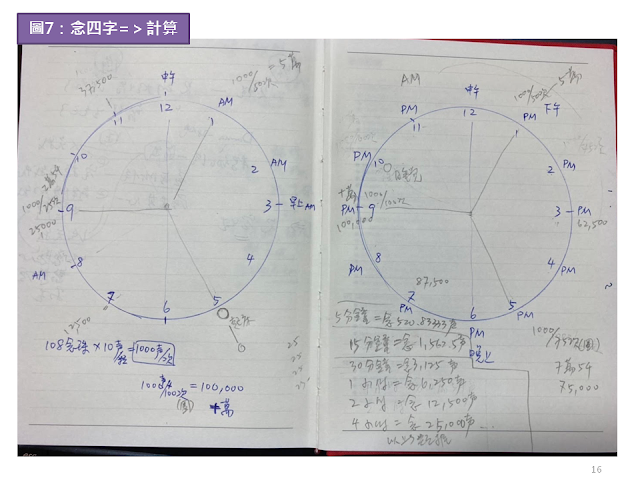 圖7：念四字=>計算
37,500
1000/50次
=5萬
中午
12
AM
11
1
10
2
AM
2萬5千
1000/25次
25000
9
3
早上AM
8
4
AM
7
6
5
12,500
108念珠×10聲/粒=1000聲/次
1000聲/100次=100,000
(圈)
十萬
25
25
25
AM
中午
12
1000/50次
5萬
PM
11
1
PM
下午
PM
10
2
PM
十萬
1000/100次
PM
9
100,000
3
PM
62,500
8
PM
4
PM
87,500
7
PM
6
PM
晚上
5
PM
1000/75次(圈)
7萬5千
75,000
5分鐘=念520.83333聲
15分鐘=念1,562.5聲
30分鐘=念3,125聲
1小時=念6,250聲
2小時=念12,500聲
4小時=念25,000聲...
16